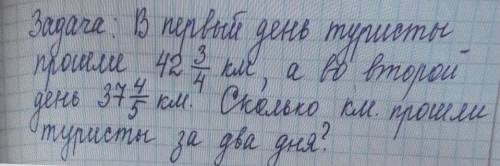 Задача: В первый день туристы
прошли 42 3/4 км, а во второй
день 37 4/5 км. Сколько км. прошли
туристы за два дня?